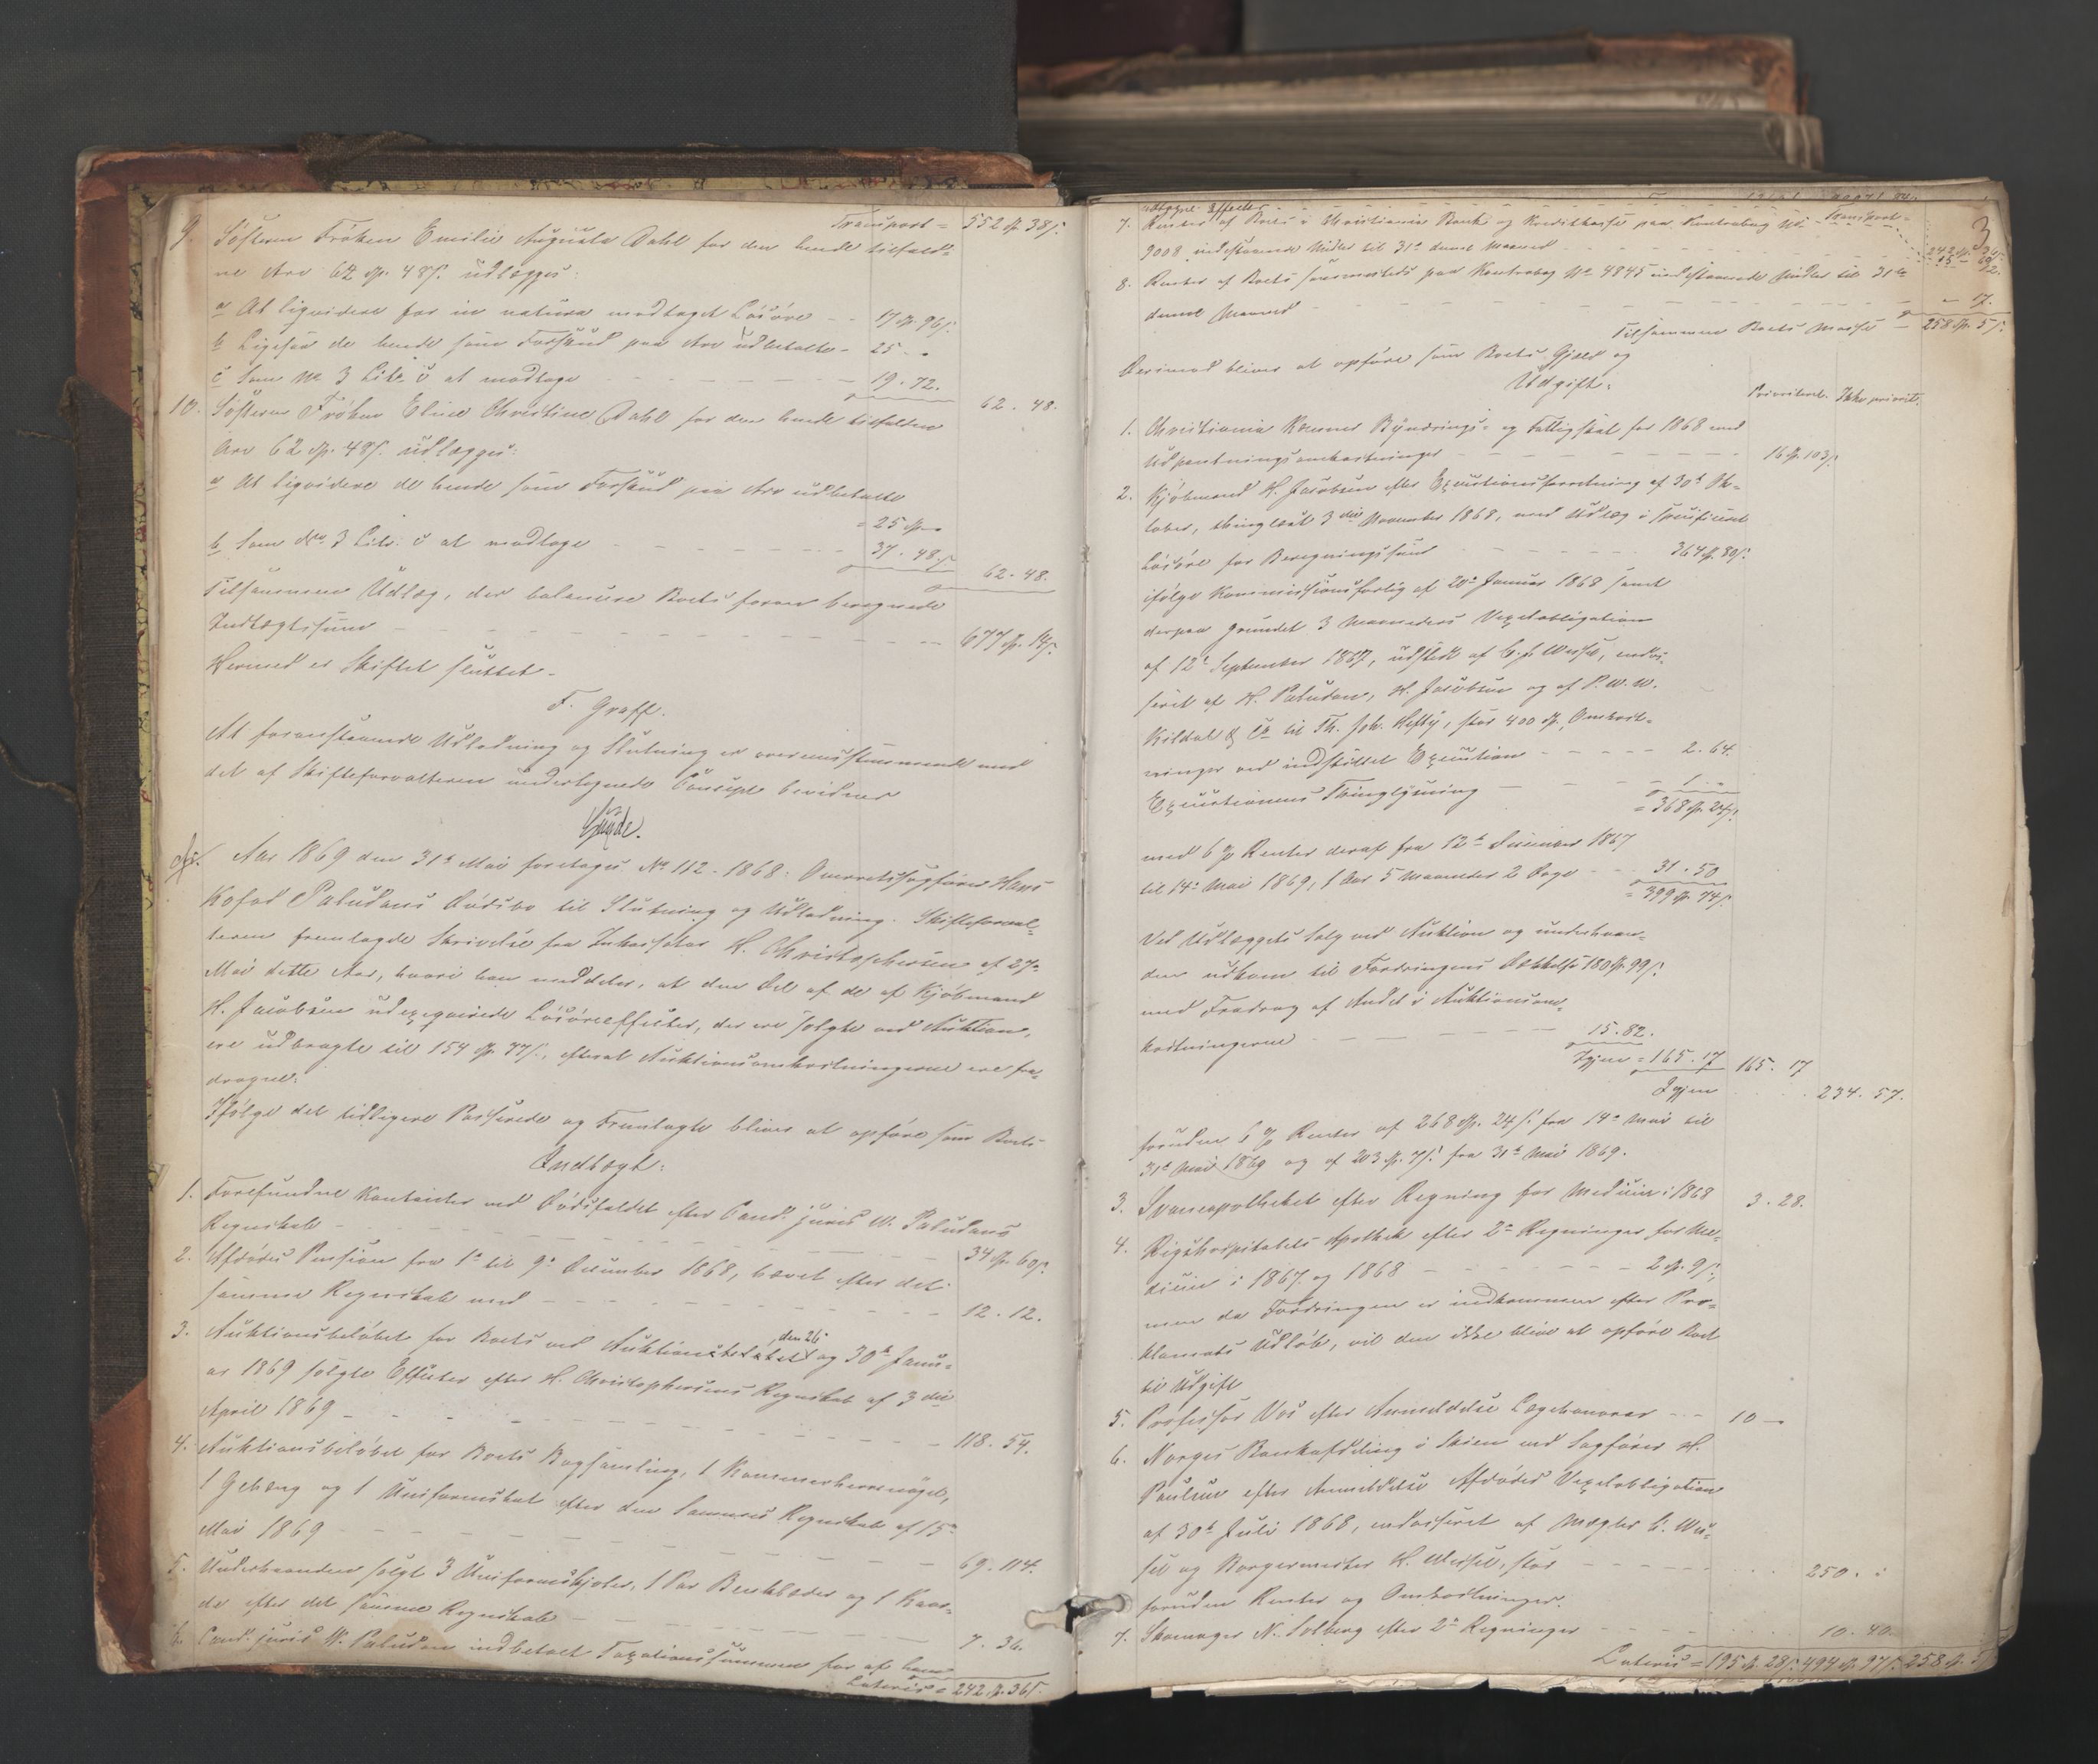 Transport = 552 Sp. 38 s.
9. Søsteren Frøken Emilie Augusta Dahl for den hende tilfald=
ne Arv 62 Sp. 48 s. udlægges:
a At liqvidere for in natura modtaget Løsøre - - 17 Sp. 96 s.
b Ligesaa de hende som Forskud paa Arv udbetalte - 25 - "
c Som No 3 Litr. c at modtage - - - 19. 72.
62. 48.
10. Søsteren Frøken Eline Christine Dahl for den hende tilfaldne
Arv 62 Sp. 48 s. udlægges:
a At liqvidere de hende som Forskud paa Arv udbetalte
= 25 Sp. "
b Som No. 3 Litr. c at modtage - - - 37. 48 s.
62. 48.
Tilsammen Udlæg, der balancere Boets foran beregnede
Indtægtssum - - - 677 Sp. 14 s.
Hermed er Skiftet sluttet.
F. Graff.
At foranstaaende Udlodning og Slutning er overensstemmende med
det af Skifteforvalteren undertegnede Concept bevidnes
Aar 1869 den 31te Mai foretoges No 112 - 1868: Overretssagfører Hans
Kofod Paludans Dødsbo til Slutning og Udlodning. Skifteforval=
teren fremlagde Skrivelse fra Inkassator H. Christophersen af 27de
Mai dette Aar, hvori han meddeler, at den Del af de af Kjøbmand
H. Jacobsen udexeqverede Løsøreeffecter, der ere solgte ved Auktion,
ere udbragte til 154 Sp. 77 s., efterat Auktionsomkostningerne ere fra=
dragne.
Ifølge det tidligere Passerede og Fremlagte bliver at opføre som Boets
Indtægt:
1. Forefundne Kontanter ved Dødsfaldet efter Cand. juris W. Paludans
Regnskab - - - 34 Sp. 60 s.
2. Afdødes Pension fra 1ste til 9de December 1868, hævet efter det
samme Regnskab med - - - 12. 12.
3. Auktionsbeløbet for Boets ved Auktion, den 26de og 30te Janu=
ar 1869 solgte Effecter efter H. Christophersens Regnskab af 3die
April 1869 - - - 118. 54.
4. Auktionsbeløbet for Boets Bogsamling, 1 Kammerherrenøgel,
1 Gehæng og 1 Uniformshat efter den Sammes Regnskab af 15de
Mai 1869 - - - 69. 114.
5. Underhaanden solgt 3 Uniformskjoler, 1 Par Benklæder og 1 Kaar=
de efter det samme Regnskab - - - 7. 36.
6. Cand. juris W. Paludan indbetalt Taxationssummen for af ham
Lateris = 242 Sp. 36 s.
3
Transport =
7. Renter af Boets i Christiania Bank og Kreditkasse paa Kontrabog No
9008 indestaaende Midler til 31te denne Maaned
8. Renter af Boets sammesteds paa Kontrabog No 4845 indestaaende Midler til 31te
denne Maaned - - - " 17.
Tilsammen Boets Masse = 258 Sp. 5 s.
Derimod bliver at opføre som Boets Gjæld og
Udgift:
Prioriteret. Ikke priorit.
1. Christiania Kæmner Bynærings- og Fattigskat for 1868 med
Udpantningsomkostninger - - - 16 Sp. 103 s.
2. Kjøbmand H. Jacobsen efter Executionsforretning af 30te Ok=
tober, thinglæst 3die November 1868, med Udlæg i specificeret
Løsøre for Beregningssum - - - 364 Sp. 80 s.
ifølge Kommissionsforlig af 20de Januar 1868 samt
derpaa grundet 3 Maaneders Vexelobligation
af 12te September 1867, udstedt af C. F. Wessel, endos=
seret af H. Paludan, H. Jacobsen og af P. W. W.
Kildal & Co til Th. Joh. Heftye, stor 400 Sp. Omkost=
ninger ved indstillet Execution - - - 2. 64.
Executionens Thinglysning - - - 1. "
= 368 Sp. 24 s.
med 6 % Renter deraf fra 12te December 1867
til 14de Mai 1869, 1 Aar 5 Maaneder 2 Dage - - 31. 50
= 399 Sp. 74 s.
Ved Udlæggets Salg ved Auktion og underhaan=
den udkom til Fordringens Dækkelse 180 Sp. 99 s.
med Fradrag af Andel i Auktionsom=
kostningerne - - - 15. 82.
Igjen = 165. 17 165. 17
Igjen 234. 57.
foruden 6 % Renter af 268 Sp. 24 s. fra 14de Mai til
31te Mai 1869 og af 203 Sp. 7 s. fra 31te Mai 1869.
3. Svaneapotheket efter Regning for Medicin i 1868 3. 28.
4. Rigshospitalets Apothek efter 2de Regninger for Me=
dicin i 1867 og 1868 - - - 2 Sp. 9 s.,
men da Fordringen er indkommen efter Pro=
klamats Udløb, vil den ikke blive at opføre Boet
til Udgift
5. Professor Voss efter Anmeldelse Lægehonorar - - - 10 - "
6. Norges Bankafdeling i Skien ved Sagfører H.
Paulsen efter Anmeldelse Afdødes Vexelobligation
af 30te Juli 1868, endosseret af Mægler C. Wes=
sel og Borgermester H. Wessel, stor - - - 250. "
foruden Renter og Omkostninger.
7. Skomager N. Solberg efter 2de Regninger - - - 10. 40.
Lateris = 195 Sp. 28 s. 494 Sp. 97 s. 258 Sp. 5